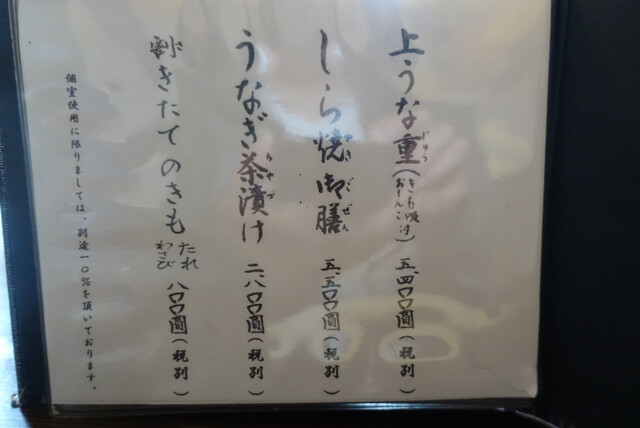 上うな重(きも吸 おしんこ付) 五、四〇〇圓(税別)
じゅう
しら焼御膳 五、五〇〇圓(税別)
やき ごぜん
うなぎ茶漬け 二、八〇〇圓(税別)
ちゃづ
割きたてのきも たれ わさび 八〇〇圓(税別)
個室使用に限りましては、別途一〇%を頂いております。